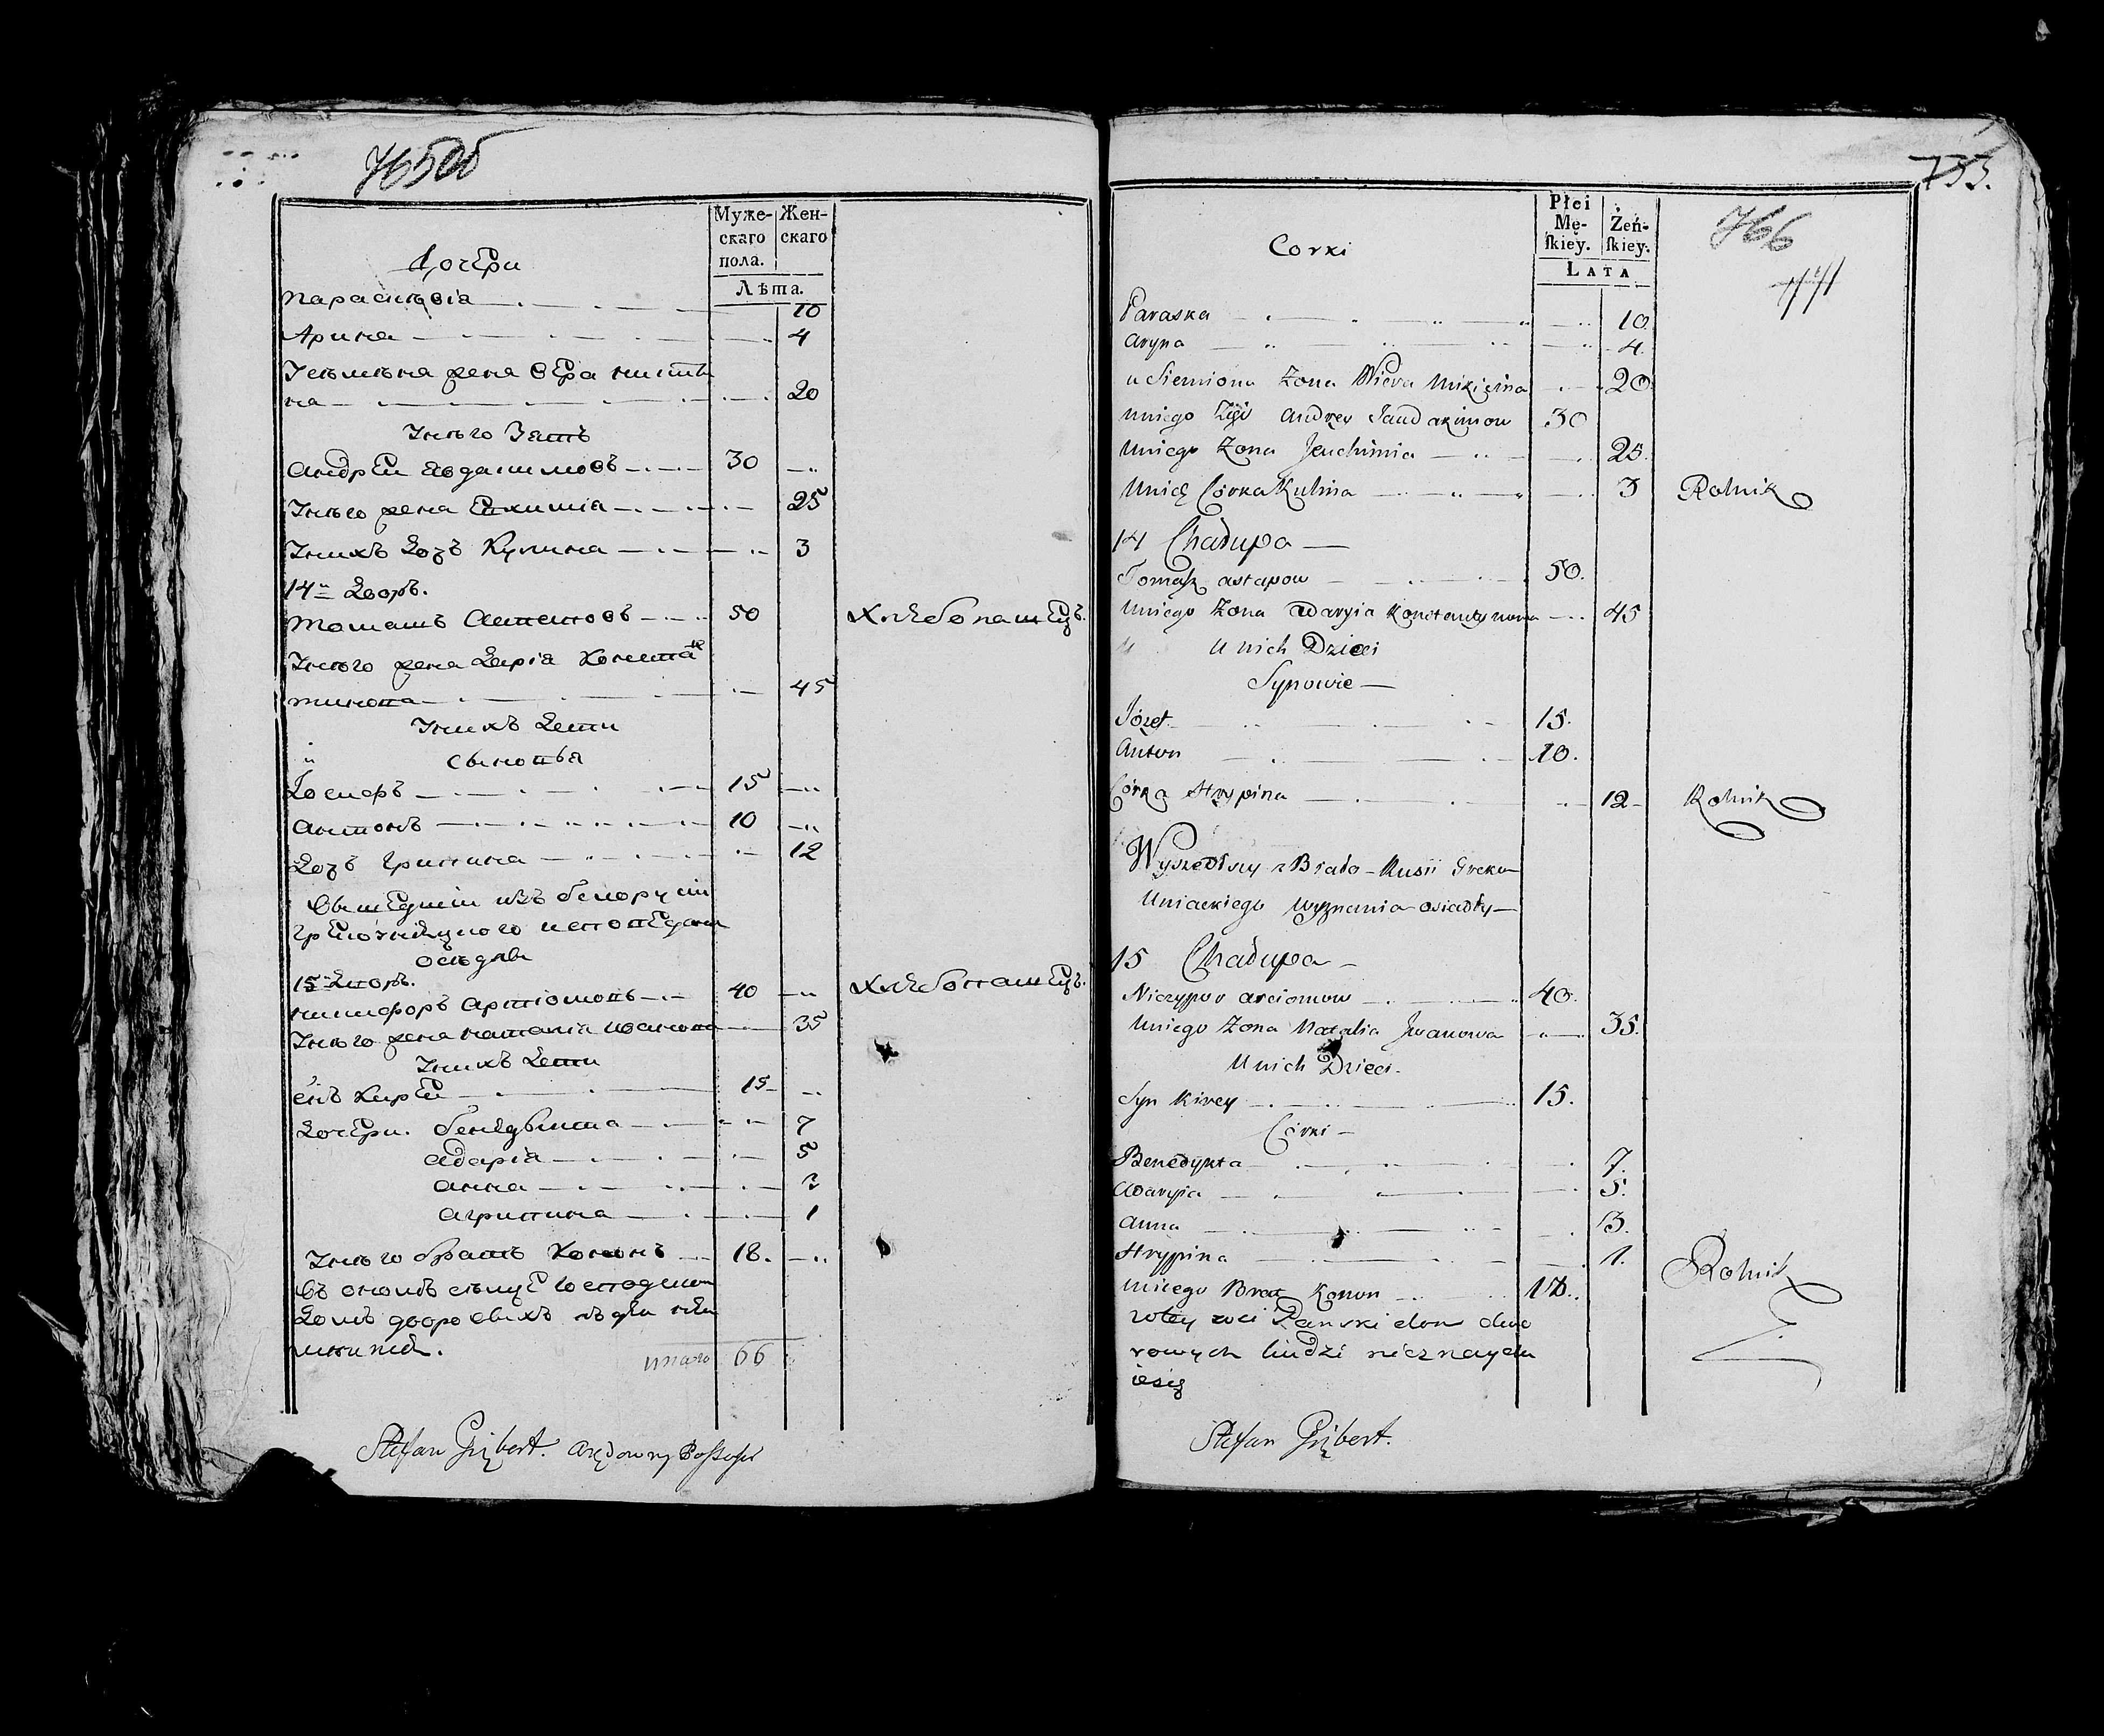 765об
Муже-
скаго
пола.
Жен-
скаго
Лѣта.
дочери
параскѣвіа 10
Арина 4
Жена Вера никити
на 20
Унѣго Зять
андрей 30
Унѣго жена Евхимія 25
Унихъ доч Кулина 3
14й Дворъ.
томашъ Астаповъ 50 Хлебопашецъ.
Унѣго жена Дарія Конста
тинова 45
Унихъ дети
сыновья
Иосифъ 15
антонъ 10
Дочъ Грипина 12
Вышедшій изъ белорусіи
греко неповедания
оседлы
15й Дворъ.
никифоръ Артіомовъ 40 Хлебопашецъ.
Унѣго жена наталія иванова 35
Унихъ дети
сынъ Кирей 15
Дочери. бенедыкта 7
адарія 5
анна 3
агрипина 1
Унѣго братъ Кононъ 18.
Въ оной
домъ дворовыхъ людей
итого 66
Stefan Gizbert. arędowny Possessor
733.
766
Płci
Mę-
skiey.
Żeń-
skiey.
LATA
Corki
Paraska 10
Aryna 4
u Siemiona Żona Wiera Mikicina 20
Uniego Zięć Andrey Jaudakimow 30
Uniego Żona Jeuchimia 25.
Unich Córka Kulina 3 Rolnik
14 Chałupa
Tomasz Astapow 50.
Uniego Żona Adaryia Konstantynowa 45
Unich Dzieci
Synowie
Józef 15.
Anton 10.
Córka Hrypina 12 Rolnik
Wyszedłszy z Biało-Rusii Greko
Uniackiego wyznania osiadły
15 Chałupa
Niczypor Arciomow 40.
Uniego Żona Natalia Iwanowa 35.
Unich Dzieci
Syn Kirey 15.
Córki
Benedykta 7.
Adaryia 5.
Anna 3.
Hrypina 1.
Uniego Brat Konon 18. Rolnik
w tey wsi Panski dom dwo
rowych ludzi nieznaydu
iesię
Stefan Gizbert.